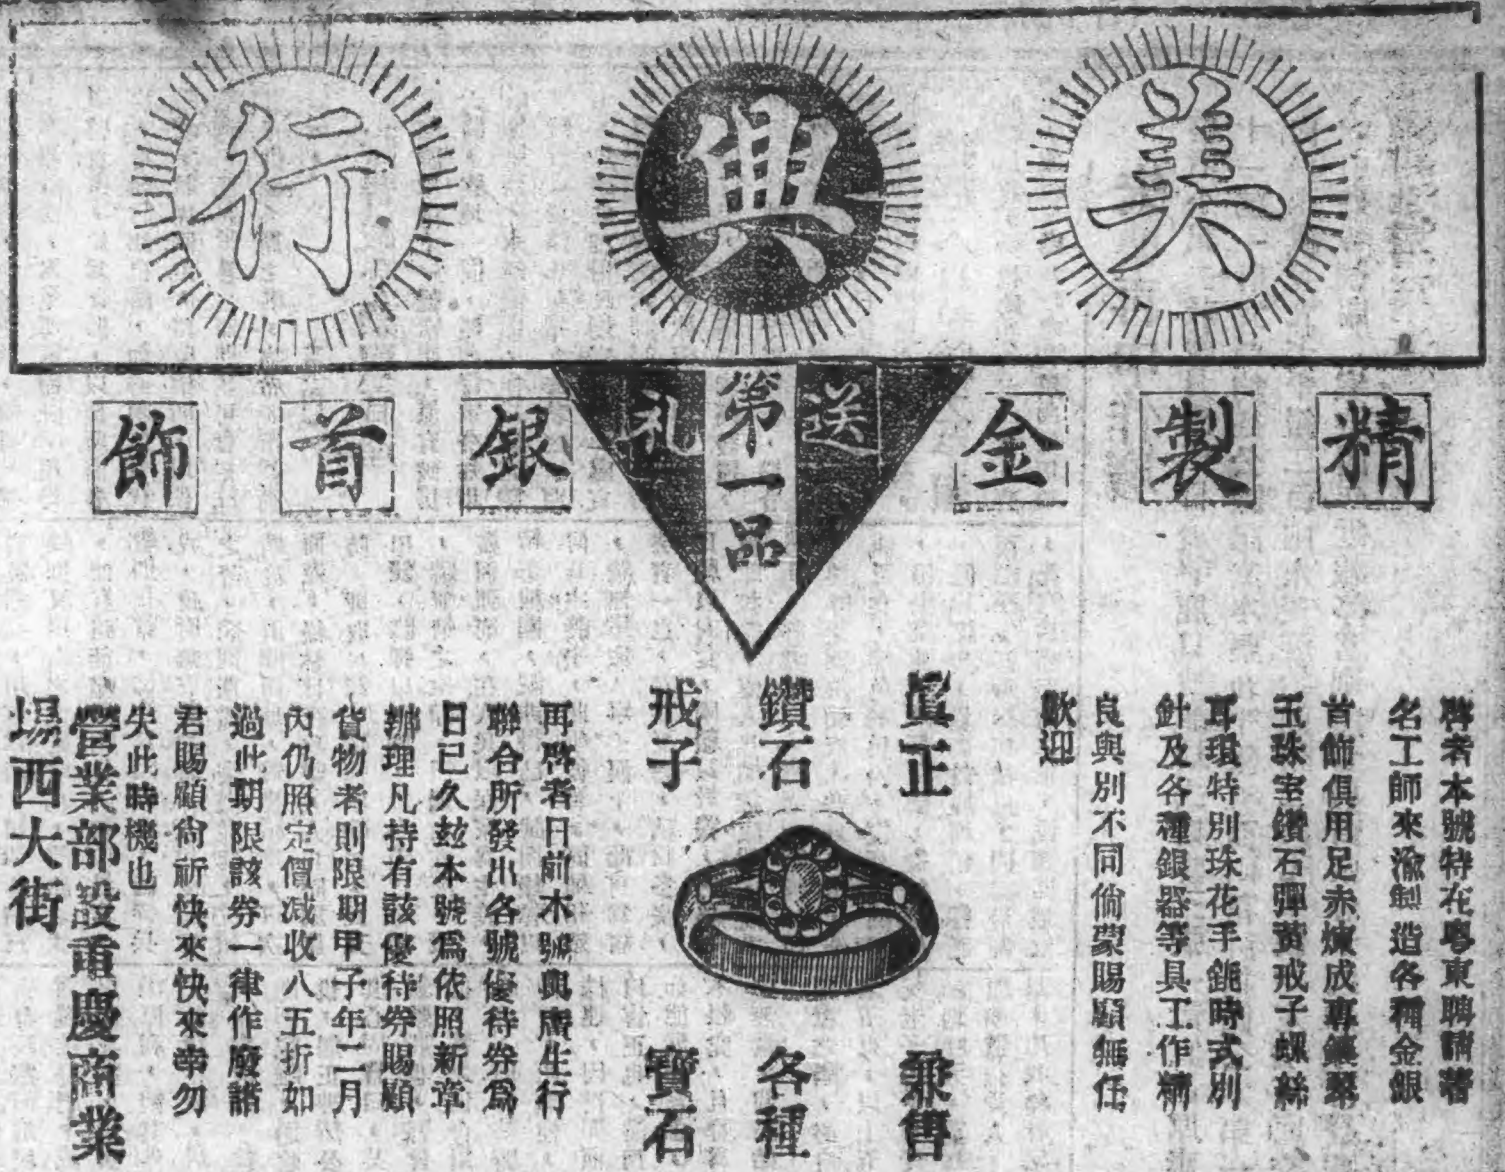 美興行
精製金銀首飾
送礼
第一品
啓者本號特在粵東聘請著
名工師來渝製造各種金銀
首飾俱用足赤煉成專鑲翠
玉珠寶鑽石彈簧戒子螺絲
耳環特別珠花手鈪時式別
針及各種銀器等具工作精
良與別不同倘蒙賜顧無任
歡迎
眞正
鑽石
戒子
兼售
各種
寶石
再啓者日前本號與廣生行
聯合所發出各號優待券爲
日已久玆本號爲依照新章
辦理凡持有該優待券賜顧
貨物者則限期甲子年二月
內仍照定價減收八五折如
過此期限該券一律作廢諸
君賜顧尙祈快來快來幸勿
失此時機也
營業部設重慶商業
場西大街